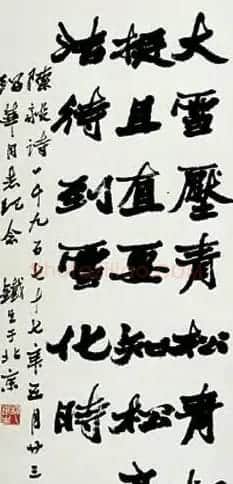 大雪壓青松青
挺且直要知松
洁待到雪化時
陳毅诗一千九百七十七年五月廿三
華同志纪念 鐵生于北京